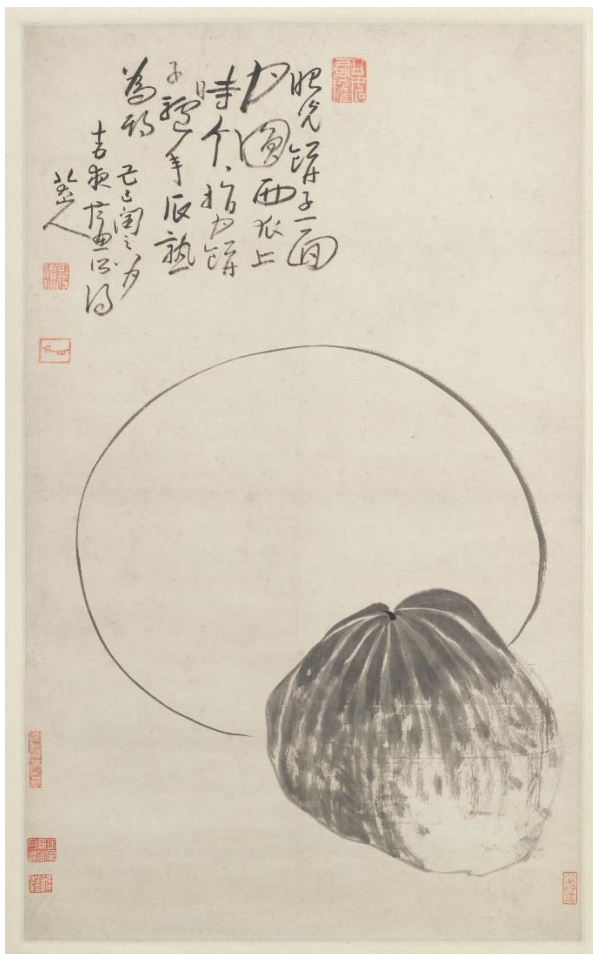 眼光餅子一面
月圓西瓜上
時个、指月餅
子驢年瓜熟
為期
己巳閏之八月
十五夜畫所得
八大山人